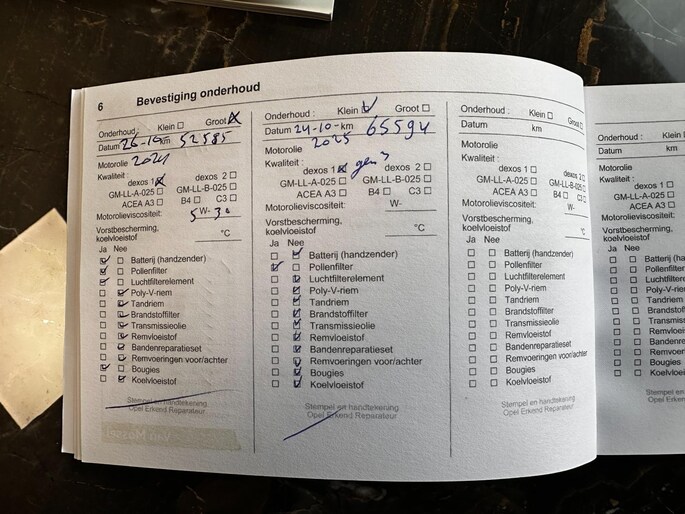 6 Bevestiging onderhoud
Onderhoud: Klein ☐ Groot ☒
Datum 26-10- km 52585
Motorolie 2024
Kwaliteit :
dexos 1 ☒ dexos 2 ☐
GM-LL-A-025 ☐ GM-LL-B-025 ☐
ACEA A3 ☐ B4 ☐ C3 ☐
Motorolieviscositeit: 5 W- 30
Vorstbescherming,
koelvloeistof °C
Ja Nee
☑ ☐ Batterij (handzender)
☑ ☐ Pollenfilter
☑ ☐ Luchtfilterelement
☐ ☑ Poly-V-riem
☐ ☑ Tandriem
☐ ☑ Brandstoffilter
☐ ☑ Transmissieolie
☐ ☑ Remvloeistof
☐ ☑ Bandenreparatieset
☐ ☑ Remvoeringen voor/achter
☑ ☐ Bougies
☐ ☑ Koelvloeistof
Stempel en handtekening
Opel Erkend Reparateur
Onderhoud : Klein ☑ Groot ☐
Datum 24-10- km 65594
Motorolie 2025
Kwaliteit :
dexos 1 ☒ gen 3 dexos 2 ☐
GM-LL-A-025 ☐ GM-LL-B-025 ☐
ACEA A3 ☐ B4 ☐ C3 ☐
Motorolieviscositeit: W-
Vorstbescherming,
koelvloeistof °C
Ja Nee
☐ ☑ Batterij (handzender)
☑ ☐ Pollenfilter
☐ ☑ Luchtfilterelement
☐ ☑ Poly-V-riem
☐ ☑ Tandriem
☐ ☑ Brandstoffilter
☐ ☑ Transmissieolie
☐ ☑ Remvloeistof
☐ ☑ Bandenreparatieset
☐ ☑ Remvoeringen voor/achter
☐ ☑ Bougies
☐ ☑ Koelvloeistof
Stempel en handtekening
Opel Erkend Reparateur
Onderhoud : Klein ☐ Groot ☐
Datum km
Motorolie
Kwaliteit :
dexos 1 ☐ dexos 2 ☐
GM-LL-A-025 ☐ GM-LL-B-025 ☐
ACEA A3 ☐ B4 ☐ C3 ☐
Motorolieviscositeit: W-
Vorstbescherming,
koelvloeistof °C
Ja Nee
☐ ☐ Batterij (handzender)
☐ ☐ Pollenfilter
☐ ☐ Luchtfilterelement
☐ ☐ Poly-V-riem
☐ ☐ Tandriem
☐ ☐ Brandstoffilter
☐ ☐ Transmissieolie
☐ ☐ Remvloeistof
☐ ☐ Bandenreparatieset
☐ ☐ Remvoeringen voor/achter
☐ ☐ Bougies
☐ ☐ Koelvloeistof
Stempel en handtekening
Opel Erkend Reparateur
Onderhoud : Klein ☐
Datum km
Motorolie
Kwaliteit :
dexos 1 ☐
GM-LL-A-025 ☐
ACEA A3 ☐
Motorolieviscositeit:
Vorstbescherming,
koelvloeistof
Ja Nee
☐ ☐ Batterij
☐ ☐ Pollenfilter
☐ ☐ Luchtfilterelement
☐ ☐ Poly-V-riem
☐ ☐ Tandriem
☐ ☐ Brandstoffilter
☐ ☐ Transmissieolie
☐ ☐ Remvloeistof
☐ ☐
☐ ☐ Remvoeringen
☐ ☐ Bougies
☐ ☐ Koelvloeistof